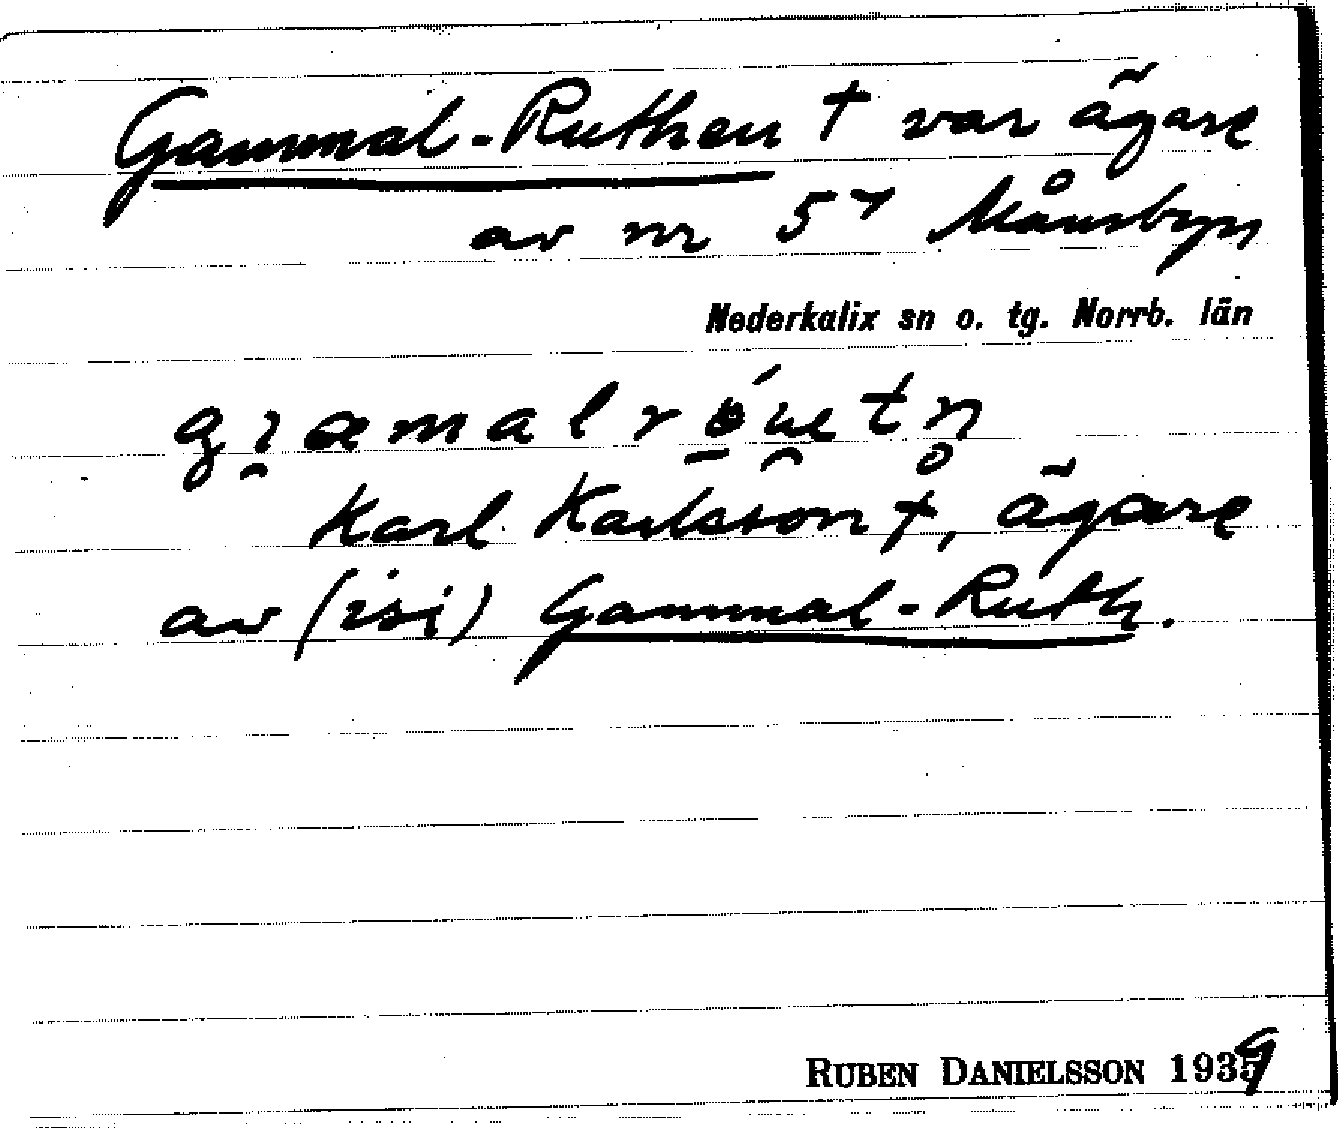 Gammal-Ruthen † var ägare
av nr 5⁴ Månsbyn
Nederkalix sn o. tg. Norrb. län
Karl Karlsson †, ägare
av (isi) Gammal-Ruth.
RUBEN DANIELSSON 1939